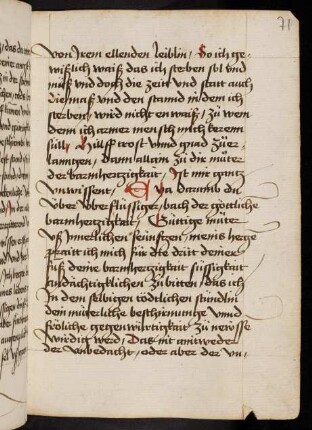 71
von Irem ellenden leiblin, So ich ge,
wißlich waiß das ich sterben sol vnd
muß vnd doch die zeit vnd statt auch
die maß vnd den stannd in dem ich
sterben wird nicht enwaiß, zů wem
dann ich armer mensch mich keren
sülle, Hilff trost vnnd gnad zů er,
lanngen, dann allain zů dir můter
der barmhertzigkait, Ist mir gantz
vnwissent, Eya darumb du
über überflüssiger bach der götliche
barmhertzigkait, Güttige můter
vß Innerlichen seüfftzen, meins hertze
ich für die dritt deiner
fuß deine barmhertzigkait süssigkait
andächtigklichen zů bitten, das ich
In dem selbigen tödtlichen stündlin
dein můterliche beschirmunge vnnd
fröliche gegenwirtigkait zů
wirdig werd, Das nit antweder
der unbedacht, oder aber der vn,